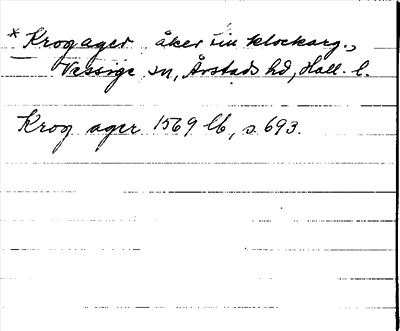 * Krogager åker
Vessige sn, Årstads hd, Hall. l.
Krog ager 1569 lb, s. 693.